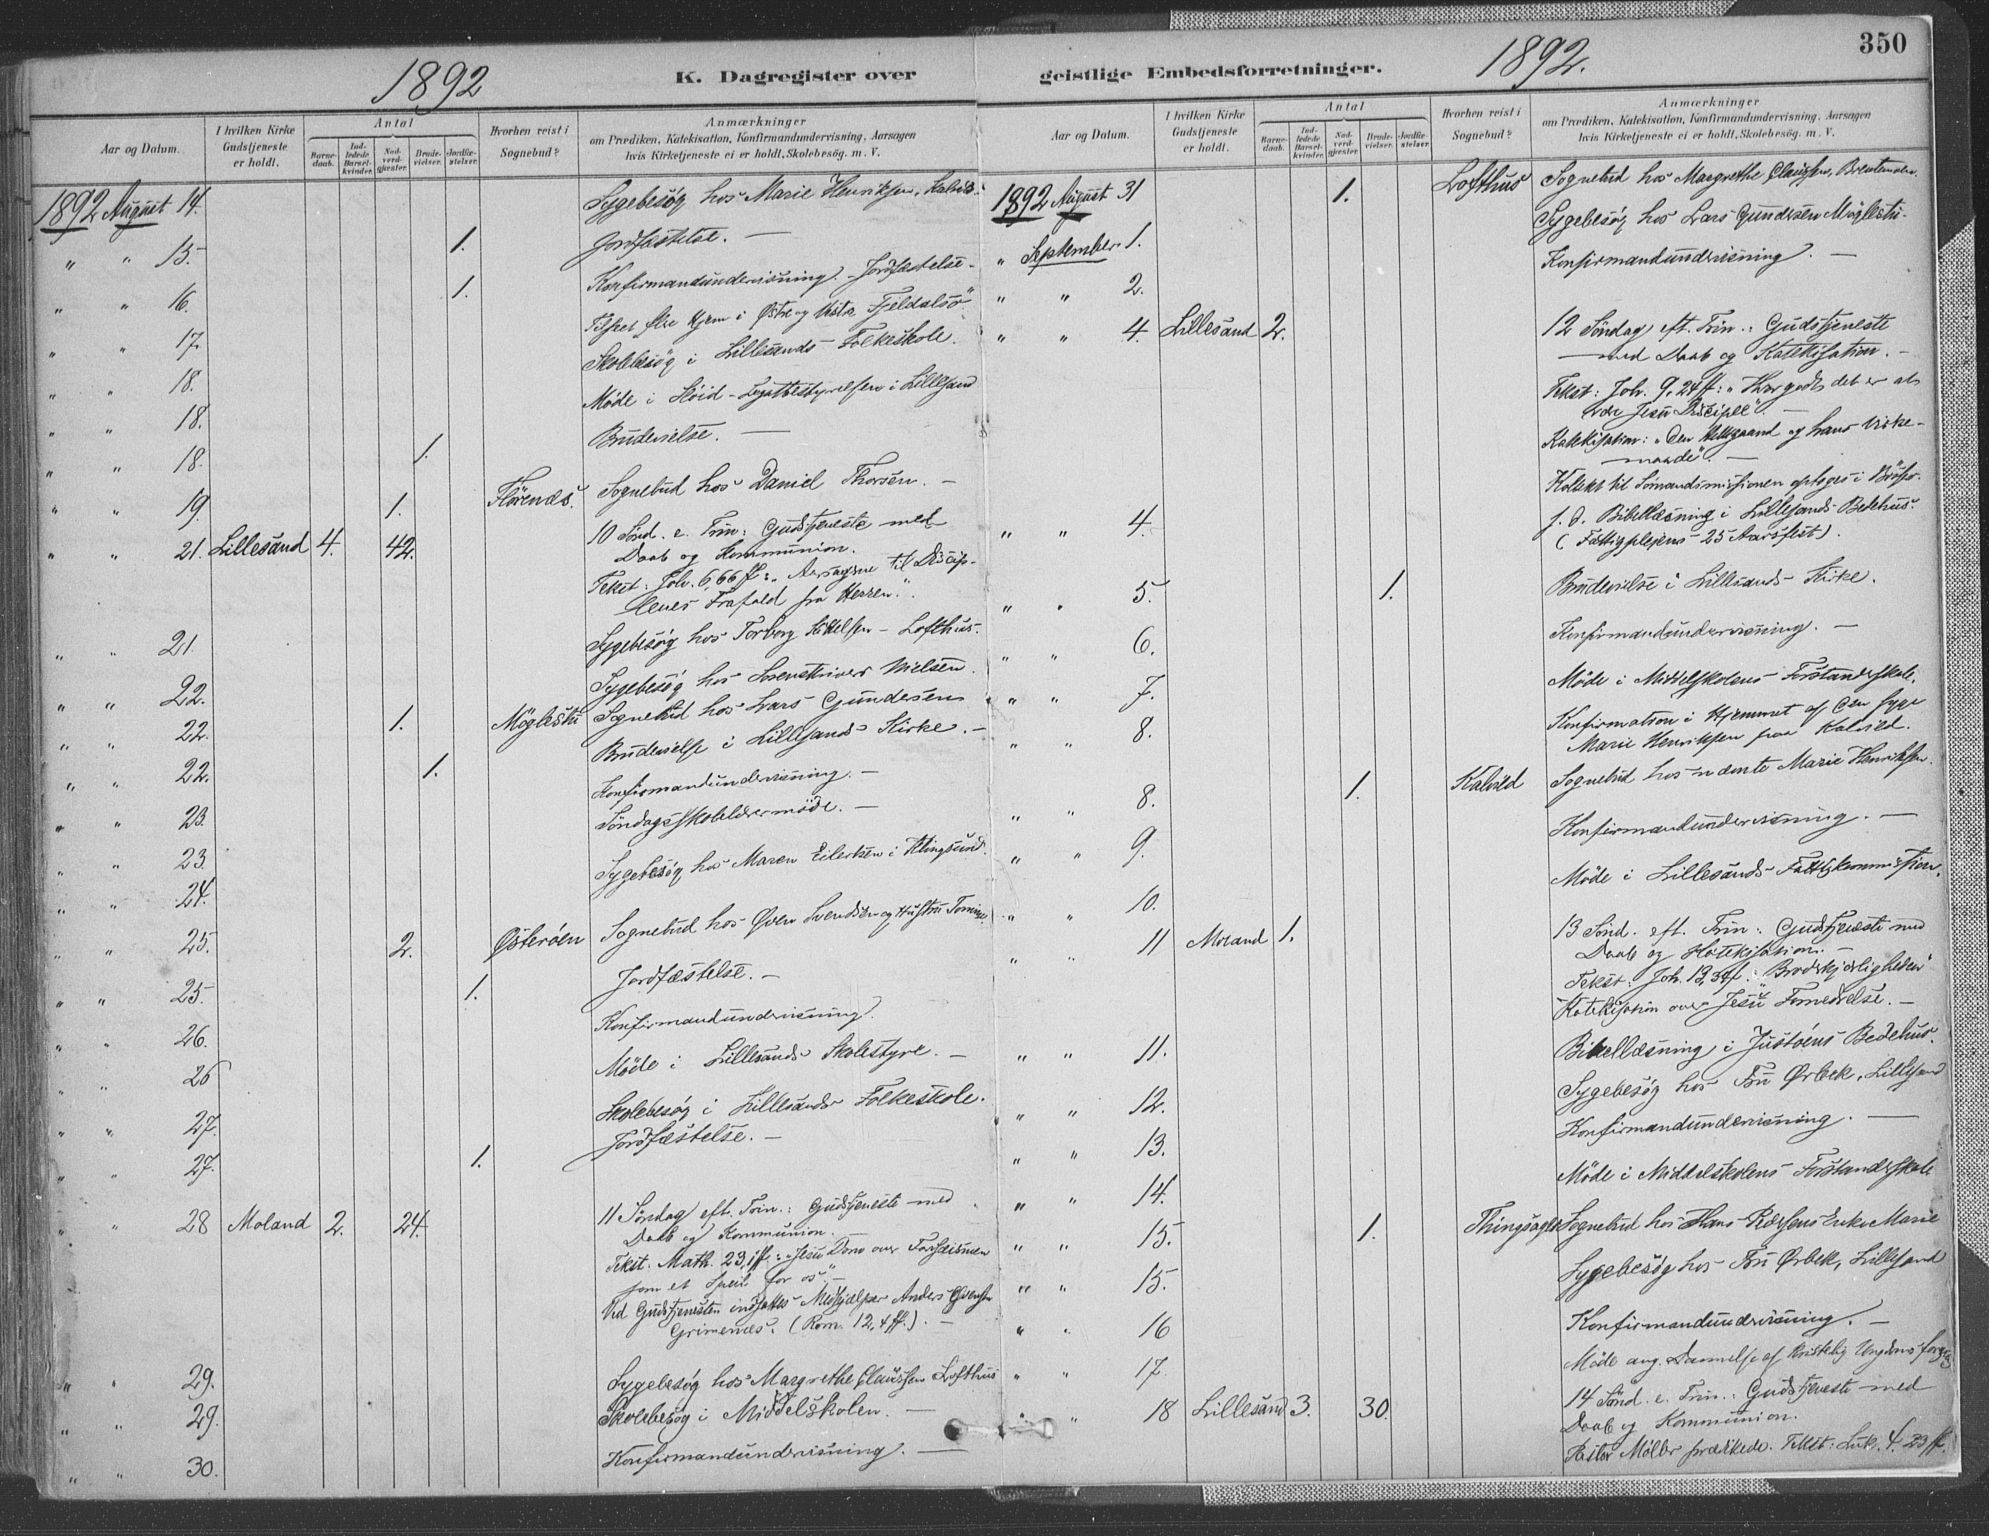 350
1892
K. Dagregister over
Aar og Datum.
I hvilken Kirke Gudstjeneste er holdt.
Antal
Barnedaab.
Indledede Barselkvinder.
Nadverdgjester.
Brudevielser.
Jordfæstelser.
Hvorhen reist i Sognebud?
Anmærkninger
om Prædiken, Katekisation, Konfirmandundervisning, Aarsagen
hvis Kirketjeneste ei er holdt, Skolebesøg. m. V.
1892 August 14. Sygebesøg hos Marie Henriksen, Kalvild.
" " 15. 1. Jordfæstelse. —
" " 16. 1. Konfirmandundervisning. Jordfæstelse.
" " 17. Hjem i Østre og Vestre Fjeldalsø.
" " 18. Skolebesøg i Lillesands Folkeskole.
" " 18. Møde i Legatbestyrelsen i Lillesand
" " 18. 1. Brudevielse. —
" " 19. 1. Flørenæs. Sognebud hos Daniel Thorsen. —
" " 21. Lillesand 4. 42. 10 Sønd. e. Trin: Gudstjeneste med
Daab og Kommunion.
Tekst: Joh. 6,66 ff: "Aarsagerne til Discip-
lenes Frafald fra Herren."
" " 21. Sygebesøg hos Torborg Kittelsen – Lofthus.
" " 22. Sygebesøg hos Sorenskriver Nielsen.
" " 22. 1. Møglestu Sognebud hos Lars Gundersen
" " 22. 1. Brudevielse i Lillesands Kirke. —
" " 23. Konfirmandundervisning. —
" " 23. Søndagsskolelærermøde. —
" " 24. Sygebesøg hos Maren Eilertsen i
" " 25. 2. Østerøen Sognebud hos Øven Svendsen og Hustru
" " 25. 1. Jordfæstelse. —
" " 26. Konfirmandundervisning.
" " 26 Møde i Lillesands Skolestyre. —
" " 27. Skolebesøg i Lillesands Folkeskole.
" " 27. 1. Jordfæstelse. —
" " 28 Moland 2. 24. 11 Søndag eft. Trin.: Gudstjeneste med
Daab og Kommunion.
Tekst. Math. 23,1 ff: "Jesu Dom over Farisæerne
som et Speil for os". —
Ved Gudstjenesten indsattes Medhjælper Anders
Grimenæs. (Rom. 12,4 ff.). —
" " 29. Sygebesøg hos Margrethe Claussen Lofthus
" " 29. Skolebesøg i Middelskolen. —
" " 30. Konfirmandundervisning. —
geistlige Embedsforretninger.
1892.
Aar og Datum.
I hvilken Kirke Gudstjeneste er holdt.
Antal
Barnedaab.
Indledede Barselkvinder.
Nadverdgjester.
Brudevielser.
Jordfæstelser.
Hvorhen reist i Sognebud?
Anmærkninger
om Prædiken, Katekisation, Konfirmandundervisning, Aarsagen
hvis Kirketjeneste ei er holdt, Skolebesøg. m. V.
1892 August 31 1. Lofthus Sognebud hos Margrethe Claussen,
" September 1. Sygebesøg hos Lars Gundersen Møglestu.
" " 2. Konfirmandundervisning. —
" " 4. Lillesand 2. 12 Søndag eft. Trin.: Gudstjeneste
med Daab og Katekisation. —
Tekst: Joh. 9, 24 ff: "Hvor godt det er at
være Jesu Discipel". —
Katekisation: "Den Helligaand og hans Virke-
maade". —
Kollekt til Sømandsmissionen optoges i Bøsser.
" " 4. s. d. Bibellæsning i Lillesands Bedehus.
(Fattigplejens 25 Aarsfest).
" " 5. 1. Brudevielse i Lillesands Kirke.
" " 6. Konfirmandundervisning. —
" " 7. Møde i Middelskolens Forstanderskab.
" " 8. Konfirmation i Hjemmet af den syge
Marie Henriksen fraa Kalvild.
" " 8. 1. Kalvild Sognebud hos nævnte Marie Henriksen.
" " 9. Konfirmandundervisning. —
" " 10. Møde i Lillesands Fattigkommission.
" " 11 Moland 1. 13 Sønd. eft. Trin: Gudstjeneste med
Daab og Katekisation. —
Tekst: Joh. 13,34 f. "Broderkjærligheden"
Katekisation over Jesu Fornedrelse. —
" " 11. Bibellæsning i Justøens Bedehus.
" " 12. Sygebesøg hos Fru Ørbek, Lillesand
" " 13. Konfirmandundervisning. —
" " 14. Møde i Middelskolens Forstanderskab
" " 15. 1. Sognebud hos Hans Enke Marie
" " 15. Sygebesøg hos Fru Ørbek, Lillesand
" " 16 Konfirmandundervisning. —
" " 17. Møde ang. Dannelse af Kristelig Ungdomsforen.
" " 18 Lillesand 3. 30. 14 Sønd. e. Trin.: Gudstjeneste med
Daab og Kommunion.
Pastor Møller prædikede. Tekst: Luk. 4. 23 ff.